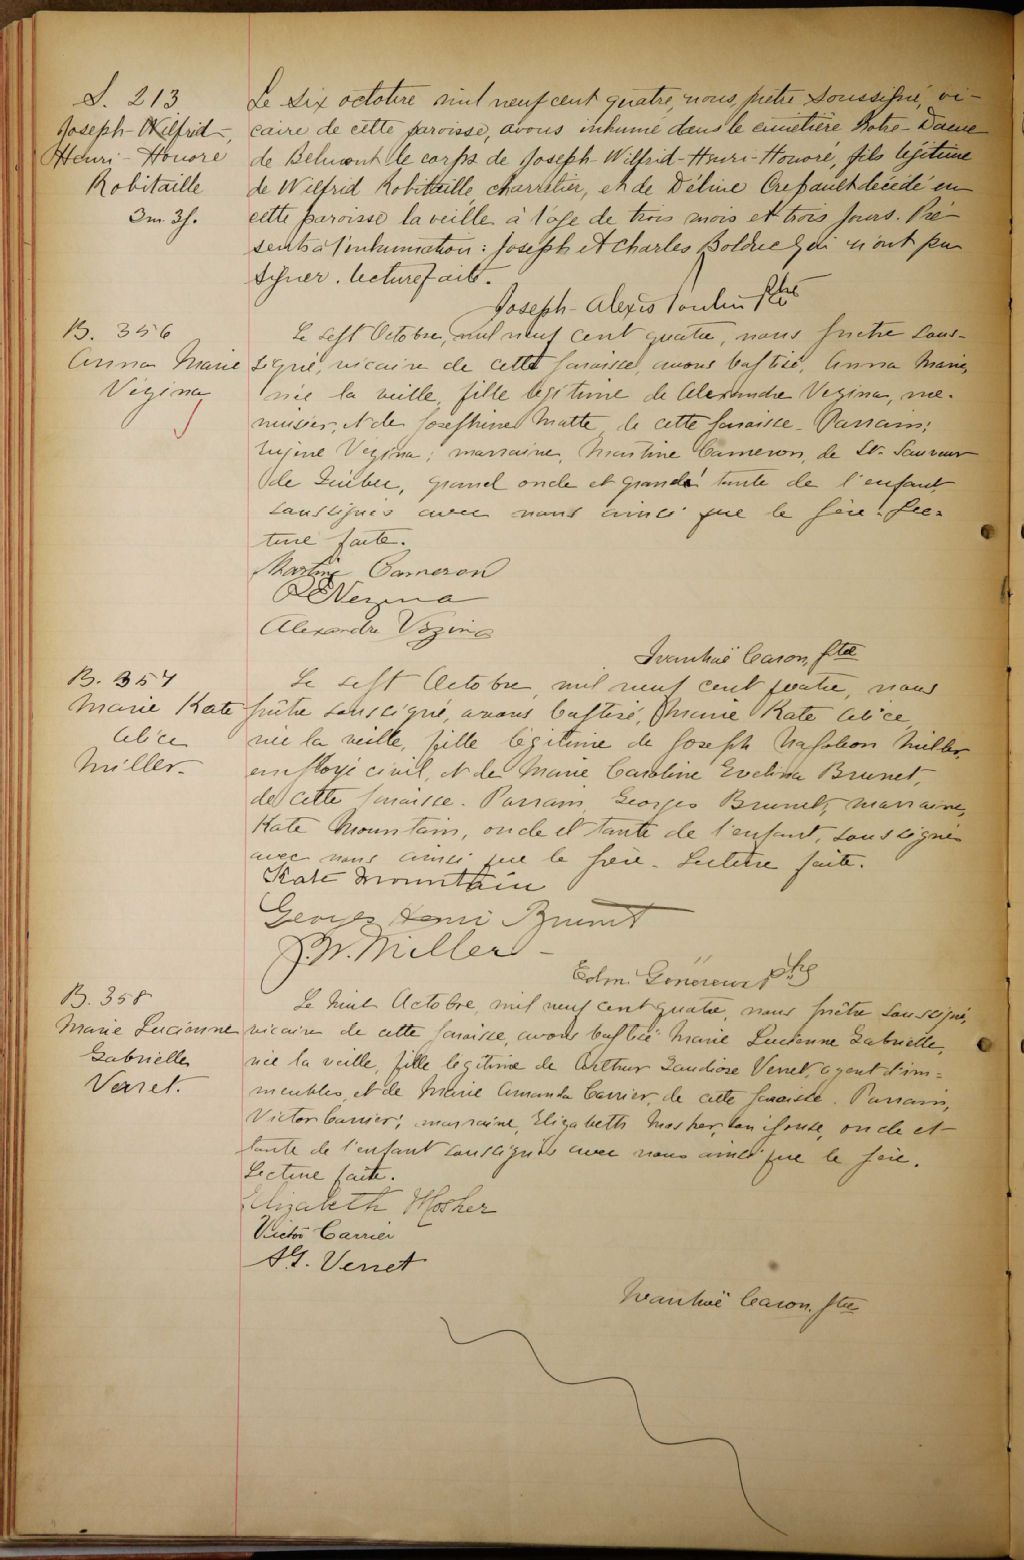 S. 213
Joseph-Wilfrid-
Henri-Honoré
Robitaille
3m. 3j.
Le six octobre mil neuf cent quatre, nous, prêtre soussigné, vi-
caire de cette paroisse, avons inhumé dans le cimetière Notre-Dame
de Belmont le corps de Joseph-Wilfrid-Henri-Honoré, fils légitime
de Wilfrid Robitaille, charretier, et de Déline Crepault décédé en
cette paroisse la veille à l'âge de trois mois et trois jours. Pré-
sents à l'inhumation: Joseph et Charles Bolduc qui n'ont pu
signer. lecture faite.
Joseph-Alexis Poulin Ptre
B. 356
Anna Marie
Vezina
Le sept Octobre, mil neuf cent quatre, nous prêtre sous-
signé, vicaire de cette paroisse, avons baptisé, Anna Marie,
née la veille, fille légitime de Alexandre Vezina, me-
nuisier, et de Josephine Matte de cette paroisse. Parrain;
Eugène Vezina; marraine, Martine Cameron, de St. Sauveur
de Québec, grand oncle et grande tante de l'enfant
soussignés avec nous ainsi que le père. Lec-
ture faite.
Martine Cameron
Vezina
Alexandre Vézina
Ivanhoë Caron, ptre
B. 357
Marie Kate
Alice
Miller.
Le sept Octobre, mil neuf cent quatre, nous
prêtre soussigné, avons baptisé, Marie Kate Alice,
née la veille, fille légitime de Joseph Napoléon Miller,
employé civil, et de Marie Caroline Evelina Brunet,
de cette paroisse. Parrain, Georges Brunet; marraine,
Kate Mountain, oncle et tante de l'enfant, soussignés
avec nous ainsi que le père. Lecture faite.
Kate Mountain
Georges Henri Brunet
J. N. Miller
Edm. Ptre
B. 358
Marie Lucienne
Gabrielle
Verret.
Le huit Octobre, mil neuf cent quatre, nous prêtre soussigné,
vicaire de cette paroisse, avons baptisé Marie Lucienne Gabrielle,
née la veille, fille légitime de Arthur Gaudiose Verret, agent d'im-
meubles, et de Marie Amanda Carrier, de cette paroisse. Parrain,
Victor Carrier; marraine, Elizabeth Mosher, son épouse, oncle et
tante de l'enfant soussignés avec nous ainsi que le père.
Lecture faite.
Elizabeth Mosher
Victor Carrier
A.G. Verret
Ivanhoë Caron, ptre